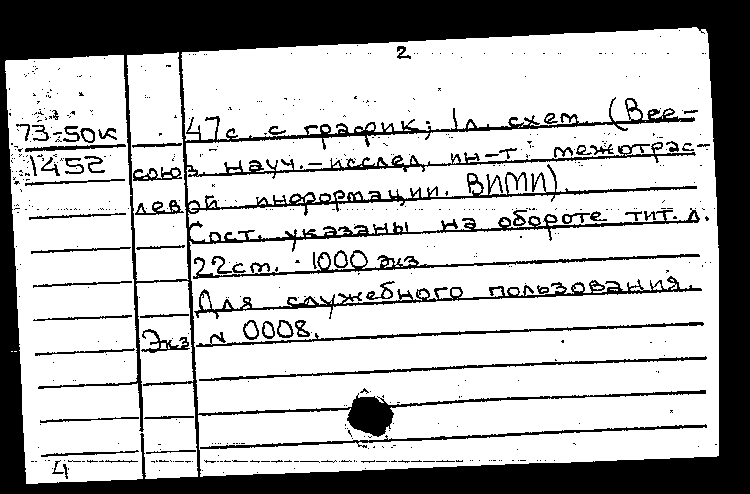 2
73-50к 47с. с график; 1л. схем. (Все-
1452 союз. науч.-исслед. ин-т межотрас-
левой информации. ВИМИ).
Сост. указаны на обороте тит. л.
22см. 1000 экз.
Для служебного пользования.
Экз. N 0008.
4